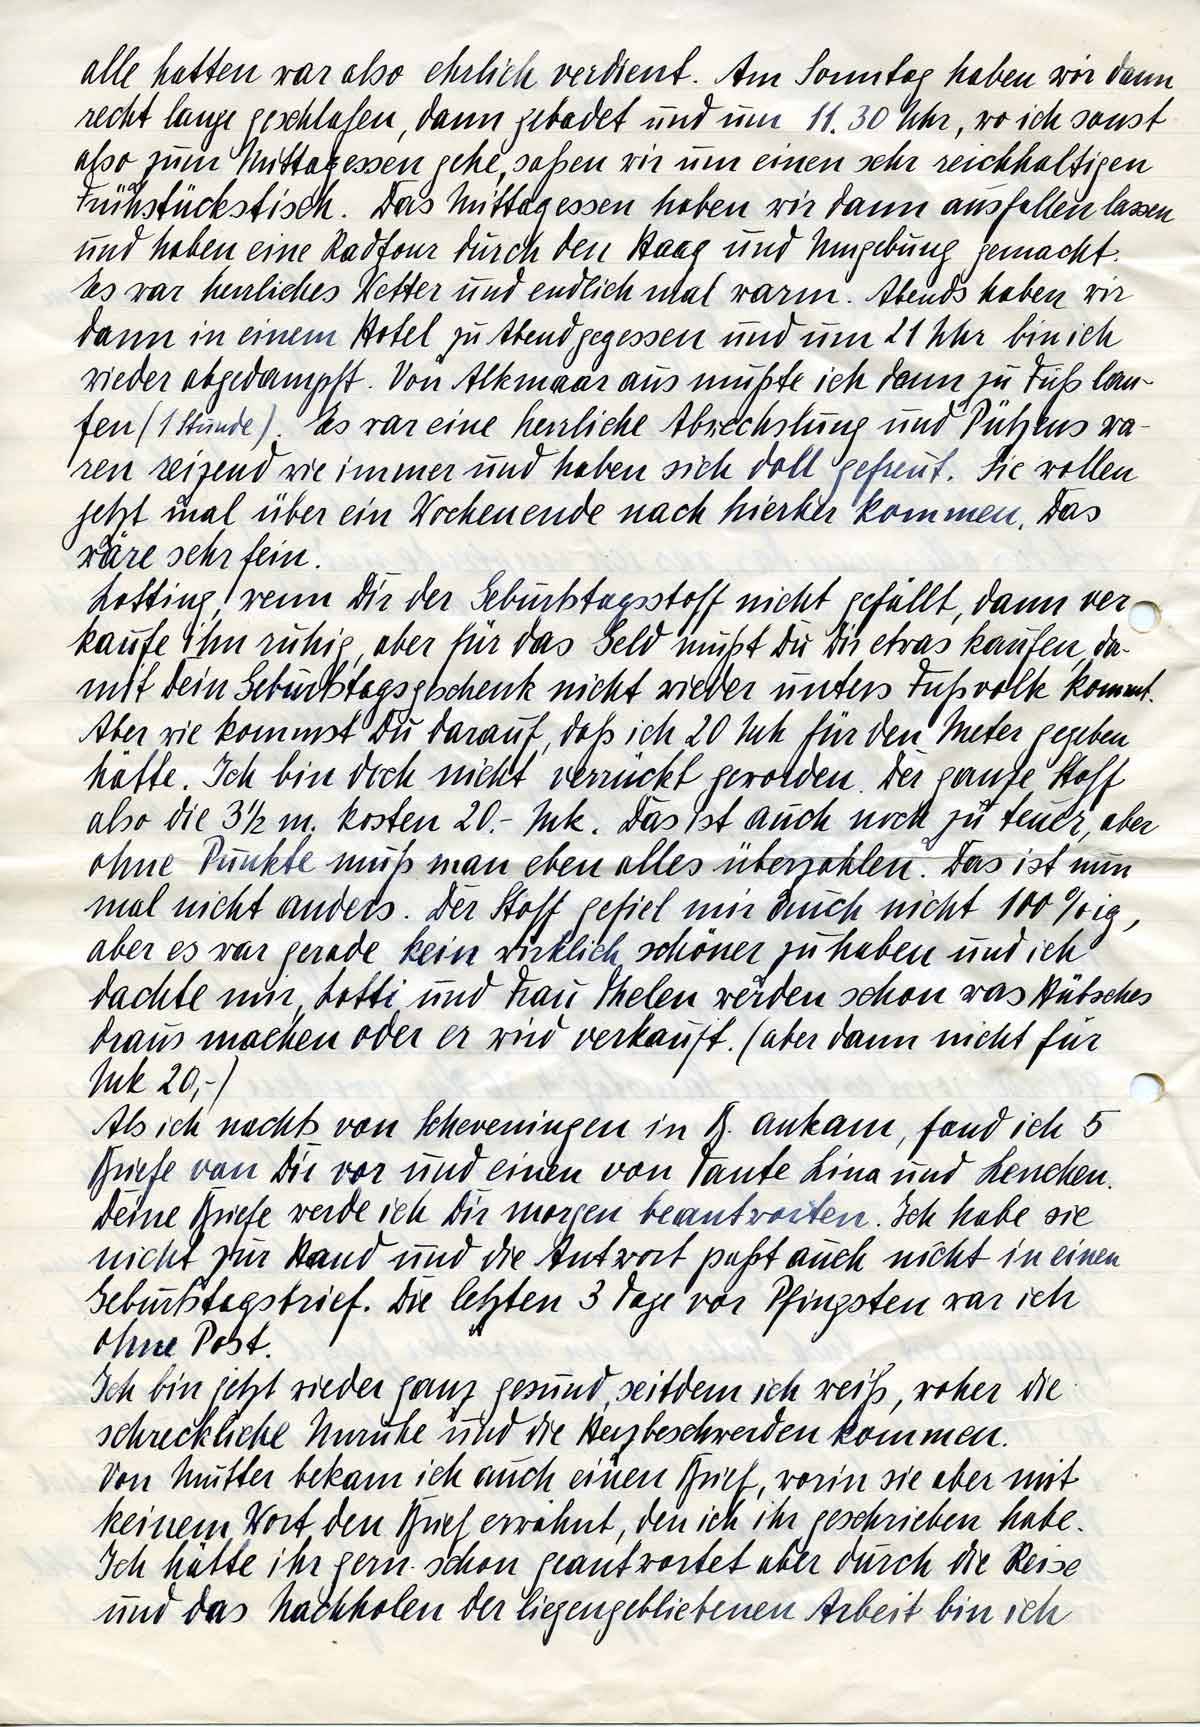 alle hatten war also ehrlich verdient. Am Sonntag haben wir dann
recht lange geschlafen, dann gebadet und um 11.30 Uhr, wo ich sonst
also zum Mittagessen gehe, saßen wir um einen sehr reichhaltigen
Frühstückstisch. Das Mittagessen haben wir dann ausfallen lassen
und haben eine Radtour durch den Haag und Umgebung gemacht.
Es war herrliches Wetter und endlich mal warm. Abends haben wir
dann in einem Hotel zu Abend gegessen und um 21 Uhr bin ich
wieder abgedampft. Von Alkmaar aus mußte ich dann zu Fuß lau-
fen (1 Stunde). Es war eine herrliche Abwechslung und Pützens wa-
ren reizend wie immer und haben sich doll gefreut. Sie wollen
jetzt mal über ein Wochenende nach hierher kommen. Das
wäre sehr fein.
Lotting, wenn Dir der Geburtstagsstoff nicht gefällt, dann ver
kaufe ihn ruhig, aber für das Geld mußt Du Dir etwas kaufen, da-
mit Dein Geburtstagsgeschenk nicht wieder unters Fußvolk kommt.
Aber wie kommst Du darauf, daß ich 20 Mk für den Meter gegeben
hätte. Ich bin doch nicht verrückt geworden. Der ganze Stoff
also die 3½ m. kosten 20.- Mk. Das ist auch noch zu teuer, aber
ohne Punkte muß man eben alles überzahlen. Das ist nun
mal nicht anders. Der Stoff gefiel mir auch nicht 100%ig,
aber es war gerade kein wirklich schöner zu haben und ich
dachte mir, Lotti und Frau Thelen werden schon was Hübsches
draus machen oder er wird verkauft. (aber dann nicht für
Mk 20,-)
Als ich nachts von Scheveningen in B. ankam, fand ich 5
Briefe von Dir vor und einen von Tante Lina und Lenchen.
Deine Briefe werde ich Dir morgen beantworten. Ich habe sie
nicht zur Hand und die Antwort paßt auch nicht in einen
Geburtstagsbrief. Die letzten 3 Tage vor Pfingsten war ich
ohne Post.
Ich bin jetzt wieder ganz gesund, seitdem ich weiß, woher die
schreckliche Unruhe und die Herzbeschwerden kommen.
Von Mutter bekam ich auch einen Brief, worin sie aber mit
keinem Wort den Brief erwähnt, den ich ihr geschrieben habe.
Ich hätte ihr gern schon geantwortet aber durch die Reise
und das Nachholen der liegengebliebenen Arbeit bin ich